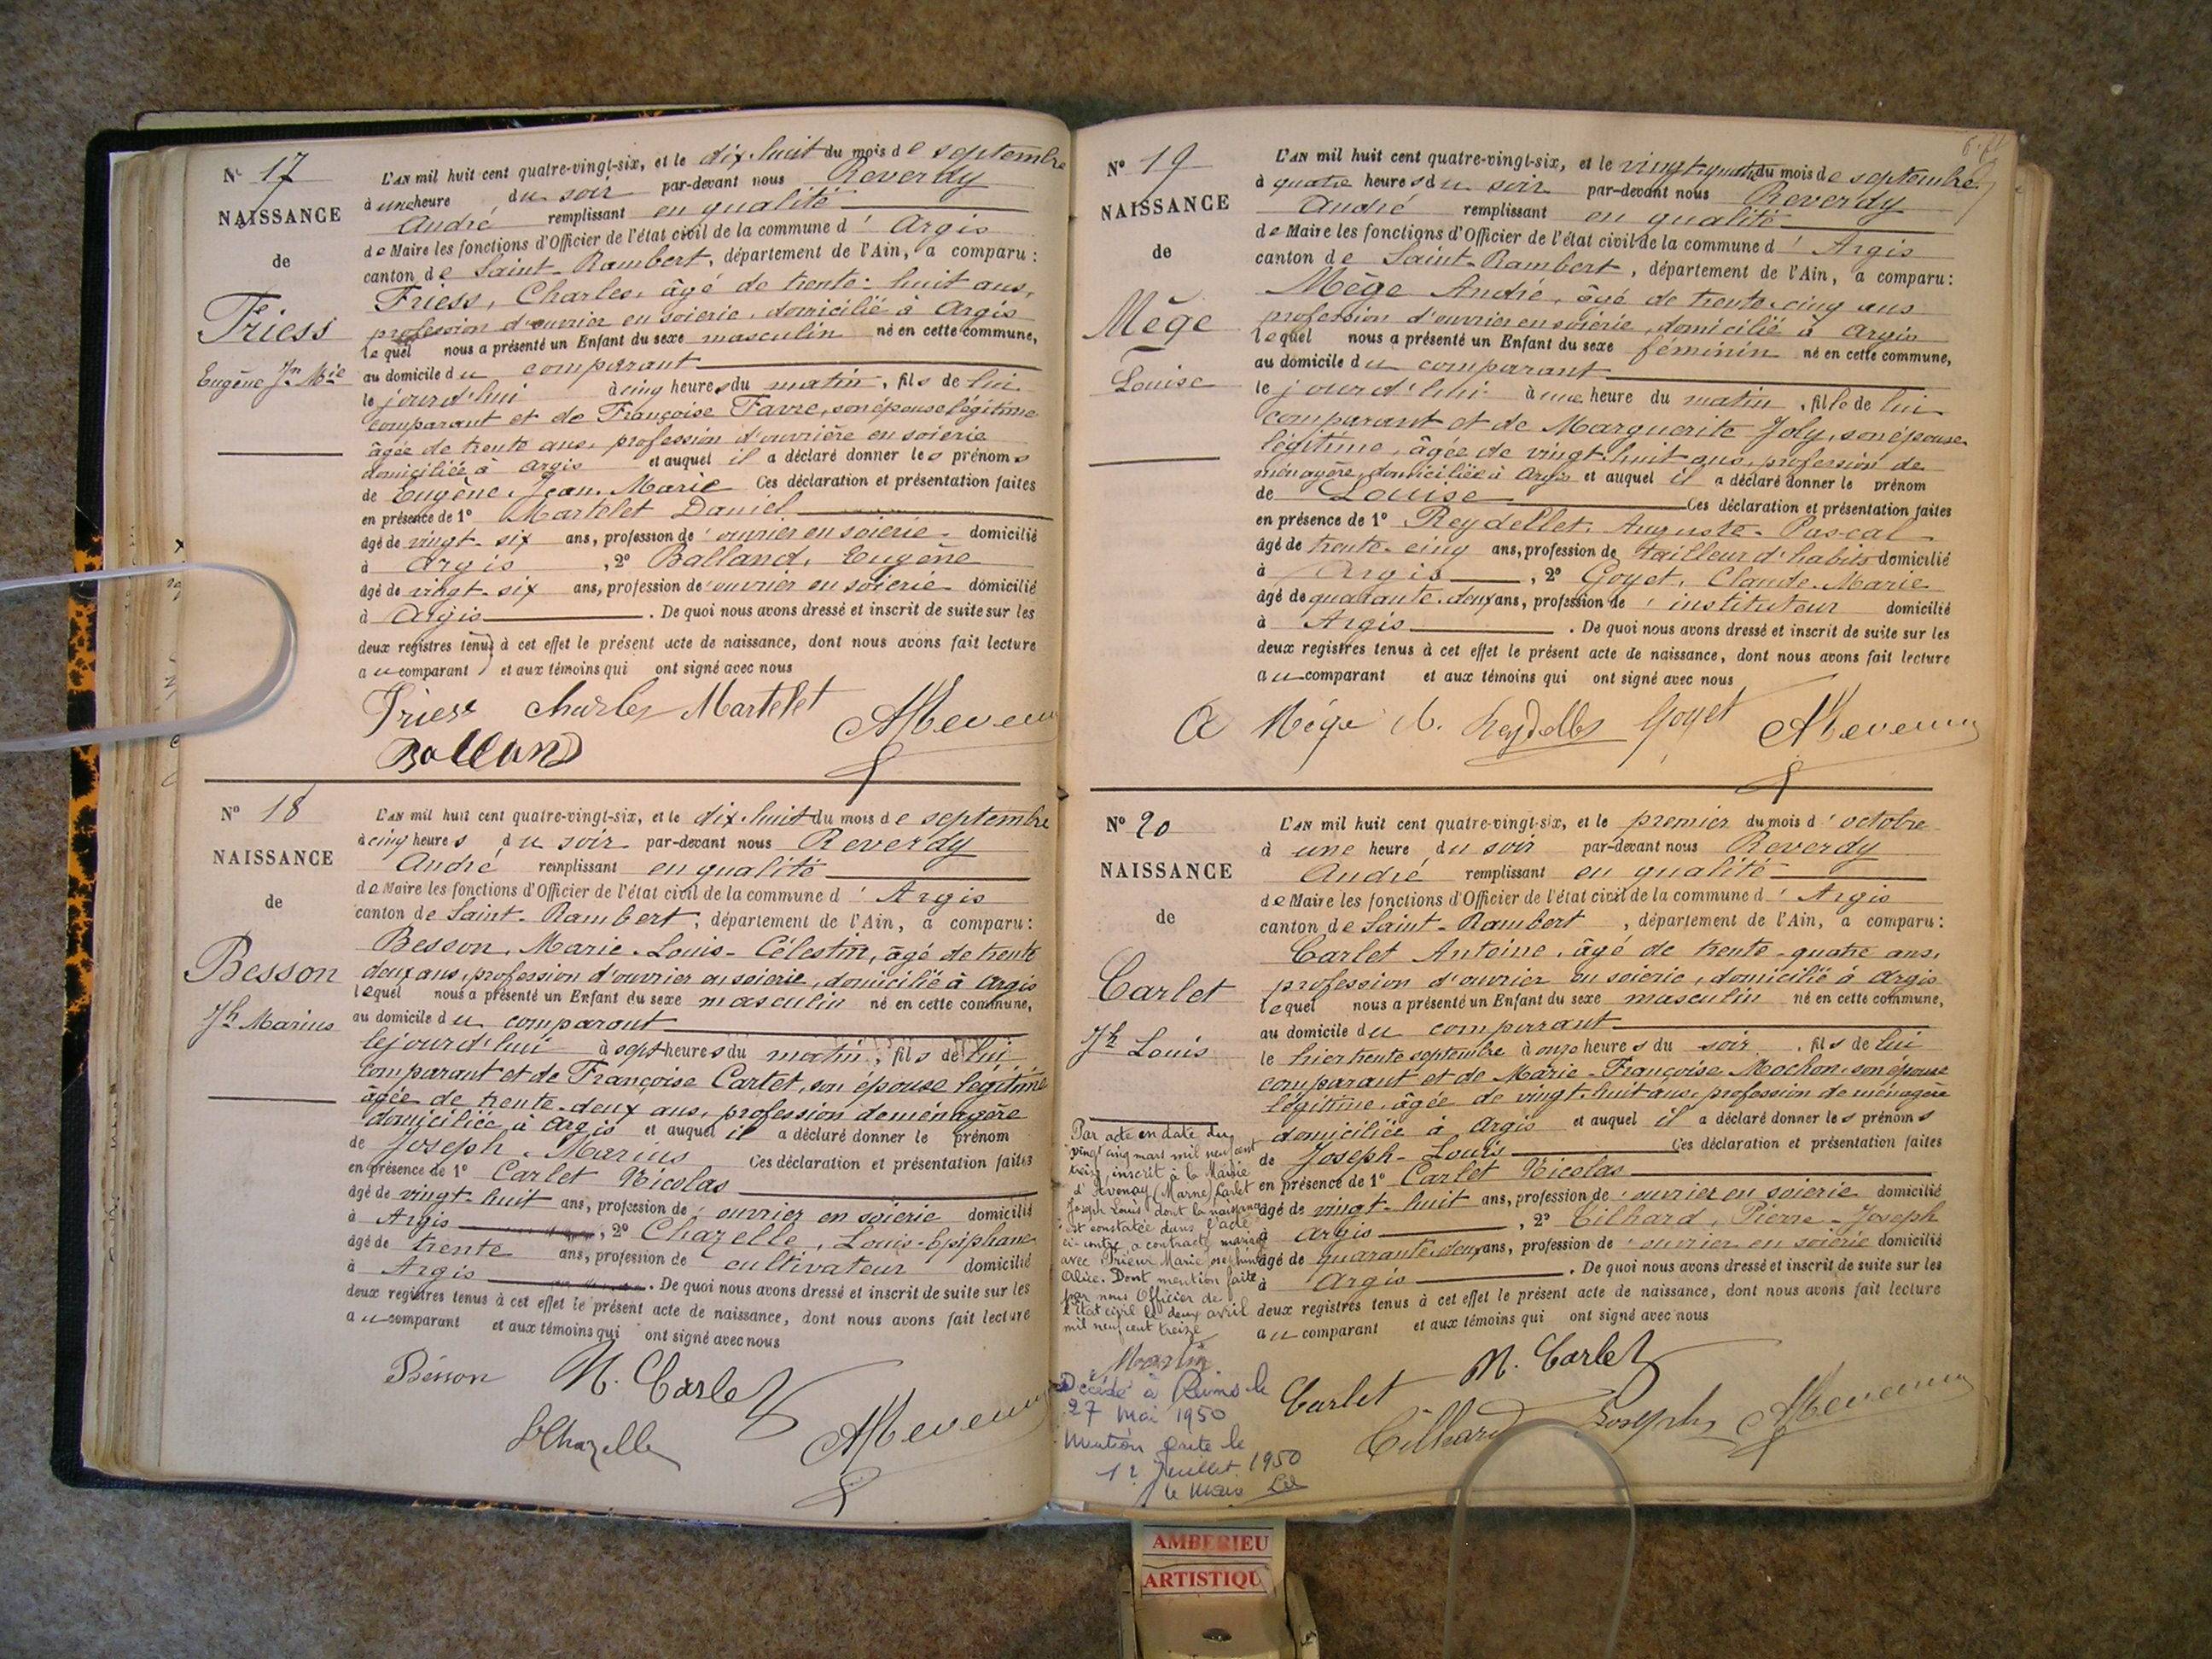 Nº 17
NAISSANCE
de
Friess
Eugène Jn Mie
L'AN mil huit cent quatre-vingt-six, et le dix-huit du mois de septembre
à une heure du soir par-devant nous Reverdy
André remplissant en qualité
de Maire les fonctions d'Officier de l'état civil de la commune d' Argis
canton de Saint-Rambert, département de l'Ain, a comparu :
Friess, Charles, âgé de trente-huit ans,
profession d'ouvrier en soierie, domicilié à Argis
lequel nous a présenté un Enfant du sexe masculin né en cette commune,
au domicile du comparant
le jourd'hui à cinq heures du matin, fils de lui
comparant et de Françoise Favre, son épouse légitime
âgée de trente ans, profession d'ouvrière en soierie
domiciliée à Argis et auquel il a déclaré donner les prénoms
de Eugène, Jean, Marie Ces déclaration et présentation faites
en présence de 1º Martelet Daniel
âgé de vingt-six ans, profession de ouvrier en soierie domicilié
à Argis, 2º Balland, Eugène
âgé de vingt-six ans, profession de ouvrier en soierie domicilié
à Argis. De quoi nous avons dressé et inscrit de suite sur les
deux registres tenus à cet effet le présent acte de naissance, dont nous avons fait lecture
au comparant et aux témoins qui ont signé avec nous
Friess Charles Martelet
Balland
Nº 18
NAISSANCE
de
Besson
Jh Marius
L'AN mil huit cent quatre-vingt-six, et le dix-huit du mois de septembre
à cinq heures du soir par-devant nous Reverdy
André remplissant en qualité
de Maire les fonctions d'Officier de l'état civil de la commune d' Argis
canton de Saint-Rambert, département de l'Ain, a comparu :
Besson, Marie-Louis-Célestin, âgé de trente
deux ans, profession d'ouvrier en soierie, domicilié à Argis
lequel nous a présenté un Enfant du sexe masculin né en cette commune,
au domicile du comparant
le jourd'hui à sept heures du matin, fils de lui
comparant et de Françoise Cartet, son épouse légitime
âgée de trente-deux ans, profession de ménagère
domiciliée à Argis et auquel il a déclaré donner le prénom
de Joseph, Marius Ces déclaration et présentation faites
en présence de 1º Carlet Nicolas
âgé de vingt-huit ans, profession de ouvrier en soierie domicilié
à Argis, 2º Chazelle, Louis-Epiphane
âgé de trente ans, profession de cultivateur domicilié
à Argis. De quoi nous avons dressé et inscrit de suite sur les
deux registres tenus à cet effet le présent acte de naissance, dont nous avons fait lecture
au comparant et aux témoins qui ont signé avec nous
Besson N. Carlet
Chazelle
Nº 19
NAISSANCE
de
Mège
Louise
L'AN mil huit cent quatre-vingt-six, et le vingt-quatre du mois de septembre
à quatre heures du soir par-devant nous Reverdy
André remplissant en qualité
de Maire les fonctions d'Officier de l'état civil de la commune d' Argis
canton de Saint-Rambert, département de l'Ain, a comparu :
Mège André, âgé de trente-cinq ans
profession d'ouvrier en soierie, domicilié à Argis
lequel nous a présenté un Enfant du sexe féminin né en cette commune,
au domicile du comparant
le jourd'hui à une heure du matin, fille de lui
comparant et de Marguerite Joly, son épouse
légitime, âgée de vingt-huit ans, profession de
ménagère, domiciliée à Argis et auquel il a déclaré donner le prénom
de Louise Ces déclaration et présentation faites
en présence de 1º Reydellet, Auguste-Pascal
âgé de trente-cinq ans, profession de tailleur d'habits domicilié
à Argis, 2º Goyet, Claude-Marie
âgé de quarante-deux ans, profession de instituteur domicilié
à Argis. De quoi nous avons dressé et inscrit de suite sur les
deux registres tenus à cet effet le présent acte de naissance, dont nous avons fait lecture
au comparant et aux témoins qui ont signé avec nous
A Mége Goyet
Nº 20
NAISSANCE
de
Carlet
Jh Louis
L'AN mil huit cent quatre-vingt-six, et le premier du mois d' octobre
à une heure du soir par-devant nous Reverdy
André remplissant en qualité
de Maire les fonctions d'Officier de l'état civil de la commune d' Argis
canton de Saint-Rambert, département de l'Ain, a comparu :
Carlet Antoine, âgé de trente-quatre ans,
profession d'ouvrier en soierie, domicilié à Argis
lequel nous a présenté un Enfant du sexe masculin né en cette commune,
au domicile du comparant
le hier trente septembre à onze heures du soir, fils de lui
comparant et de Marie-Françoise Mochon, son épouse
légitime, âgée de vingt-huit ans, profession de ménagère
domiciliée à Argis et auquel il a déclaré donner les prénoms
de Joseph-Louis Ces déclaration et présentation faites
en présence de 1º Carlet Nicolas
âgé de vingt-huit ans, profession de ouvrier en soierie domicilié
à Argis, 2º Cilhard, Pierre-Joseph
âgé de quarante-deux ans, profession de ouvrier en soierie domicilié
à Argis. De quoi nous avons dressé et inscrit de suite sur les
deux registres tenus à cet effet le présent acte de naissance, dont nous avons fait lecture
au comparant et aux témoins qui ont signé avec nous
Carlet N. Carlet
Cilhard Joseph
Par acte en date du
vingt cinq mars mil neuf cent
treize, inscrit à la Mairie
d'Avenay (Marne) Carlet
Joseph Louis dont la naissance
est constatée dans l'acte
ci-contre a contracté mariage
avec Prieur Marie Joséphine
Alice. Dont mention faite
par nous Officier de
l'Etat civil le deux avril
mil neuf cent treize
Martin
Décédé à Reims le
27 Mai 1950
Mention faite le
12 Juillet 1950
le Maire
AMBERIEU
ARTISTIQU